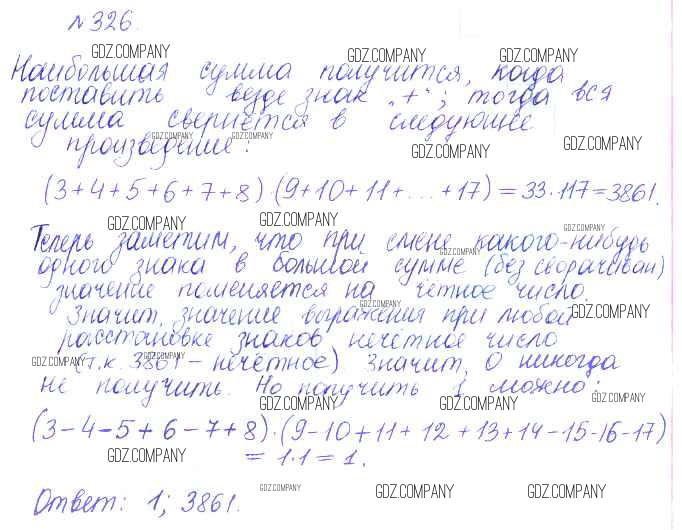 №326.
GDZ.COMPANY GDZ.COMPANY GDZ.COMPANY
Наибольшая сумма получится, когда
поставить везде знак „+“; тогда вся
сумма свернётся в следующее
GDZ.COMPANY GDZ.COMPANY
произведение:
GDZ.COMPANY GDZ.COMPANY
(3+4+5+6+7+8)·(9+10+11+...+17)=33·117=3861.
GDZ.COMPANY GDZ.COMPANY GDZ.COMPANY
Теперь заметим, что при смене какого-нибудь
GDZ.COMPANY
одного знака в большой сумме (без сворачивай)
значение поменяется на чётное число.
GDZ.COMPANY
Значит, значение выражения при любой
GDZ.COMPANY
расстановке знаков нечётное число
GDZ.COMPANY GDZ.COMPANY
(т.к. 3861 – нечётное) Значит, 0 никогда
не получить. Но получить 1 можно:
GDZ.COMPANY GDZ.COMPANY GDZ.COMPANY
(3-4-5+6-7+8)·(9-10+11+12+13+14-15-16-17)
GDZ.COMPANY
=1·1=1.
GDZ.COMPANY GDZ.COMPANY GDZ.COMPANY
Ответ: 1; 3861.